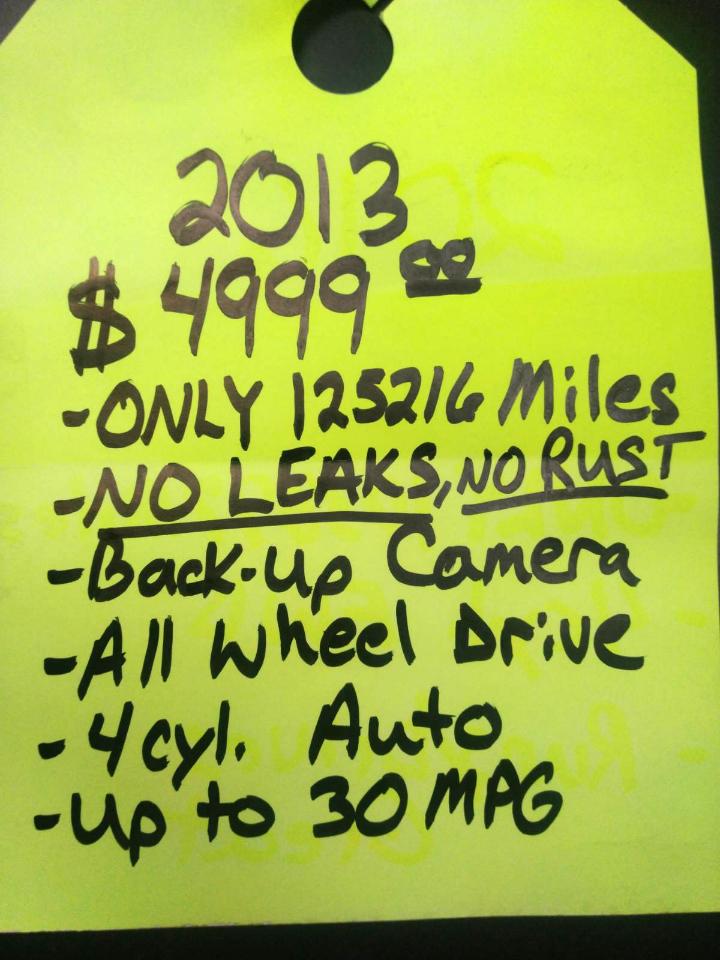 2013
$4999 00
-ONLY 125216 Miles
-NO LEAKS, NO RUST
-Back-up Camera
-All Wheel Drive
-4cyl. Auto
-Up to 30 MPG